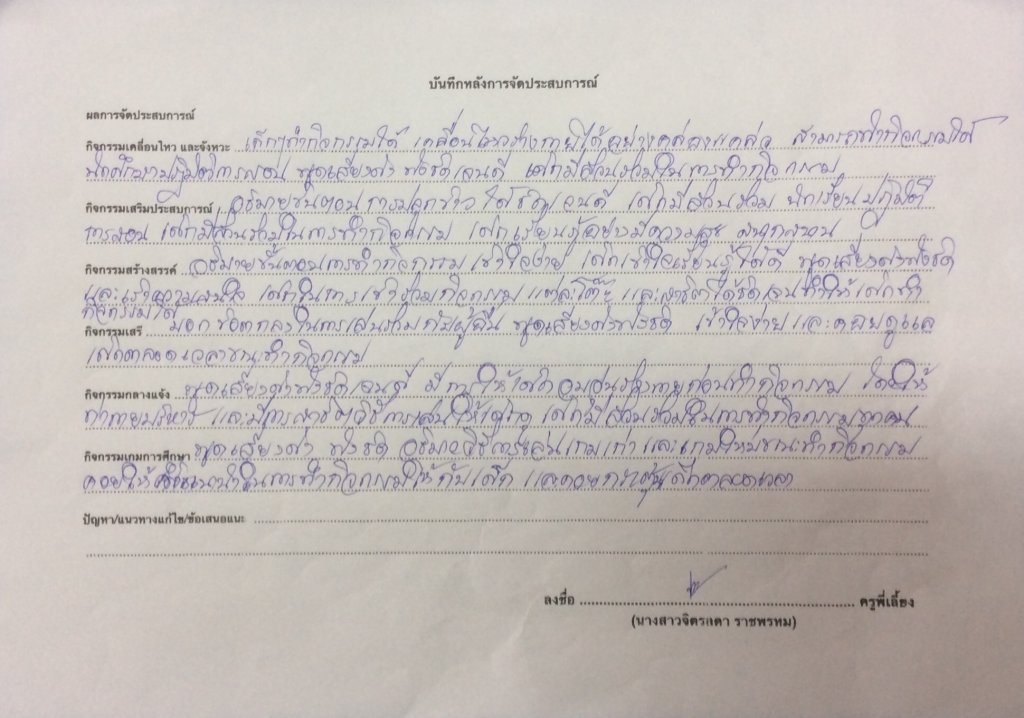 บันทึกหลังการจัดประสบการณ์
ผลการจัดประสบการณ์
กิจกรรมเคลื่อนไหว และจังหวะ เด็กๆทำกิจกรรมได้ เคลื่อนไหวร่างกายได้อย่างคล่องแคล่ว สามารถทำกิจกรรมได้
พูดเสียงดัง ฟังชัดเจนดี เด็กมีส่วนร่วมในการทำกิจกรรม
กิจกรรมเสริมประสบการณ์ อธิบายขั้นตอนการปลูกข้าว ได้ชัดเจนดี เด็กมีส่วนร่วม
การสอน เด็กมีส่วนร่วมในการทำกิจกรรม เด็กเรียนรู้อย่างมีความสุข สนุกสนาน
กิจกรรมสร้างสรรค์ อธิบายขั้นตอนการทำกิจกรรม เข้าใจง่าย เด็กเข้าใจเรียนรู้ได้ดี พูดเสียงดังฟังชัด
และเร้าความสนใจ เด็กในการเข้าร่วมกิจกรรม แต่ละโต๊ะ และสาธิตได้ชัดเจนทำให้เด็กทำ
กิจกรรมได้
กิจกรรมเสรี บอกข้อตกลงในการเล่นร่วมกับผู้อื่น พูดเสียงดังฟังชัด เข้าใจง่าย และคอยดูแล
เด็กตลอดเวลาขณะทำกิจกรรม
กิจกรรมกลางแจ้ง พูดเสียงดังฟังชัดเจนดี มีการให้เด็กอบอุ่นร่างกายก่อนทำกิจกรรม โดยให้
ท่ากายบริหาร และมีการสาธิตวิธีการเล่นให้เด็กดู เด็กมีส่วนร่วมในการทำกิจกรรมทุกคน
กิจกรรมเกมการศึกษา พูดเสียงดัง ฟังชัด อธิบายวิธีการเล่นเกมเก่า และเกมใหม่ขณะทำกิจกรรม
คอยให้คำแนะนำในการทำกิจกรรมให้กับเด็ก และคอยกระตุ้นเด็กตลอดเวลา
ปัญหา/แนวทางแก้ไข/ข้อเสนอแนะ
ลงชื่อ ครูพี่เลี้ยง
(นางสาวจิตรลดา ราชพรหม)